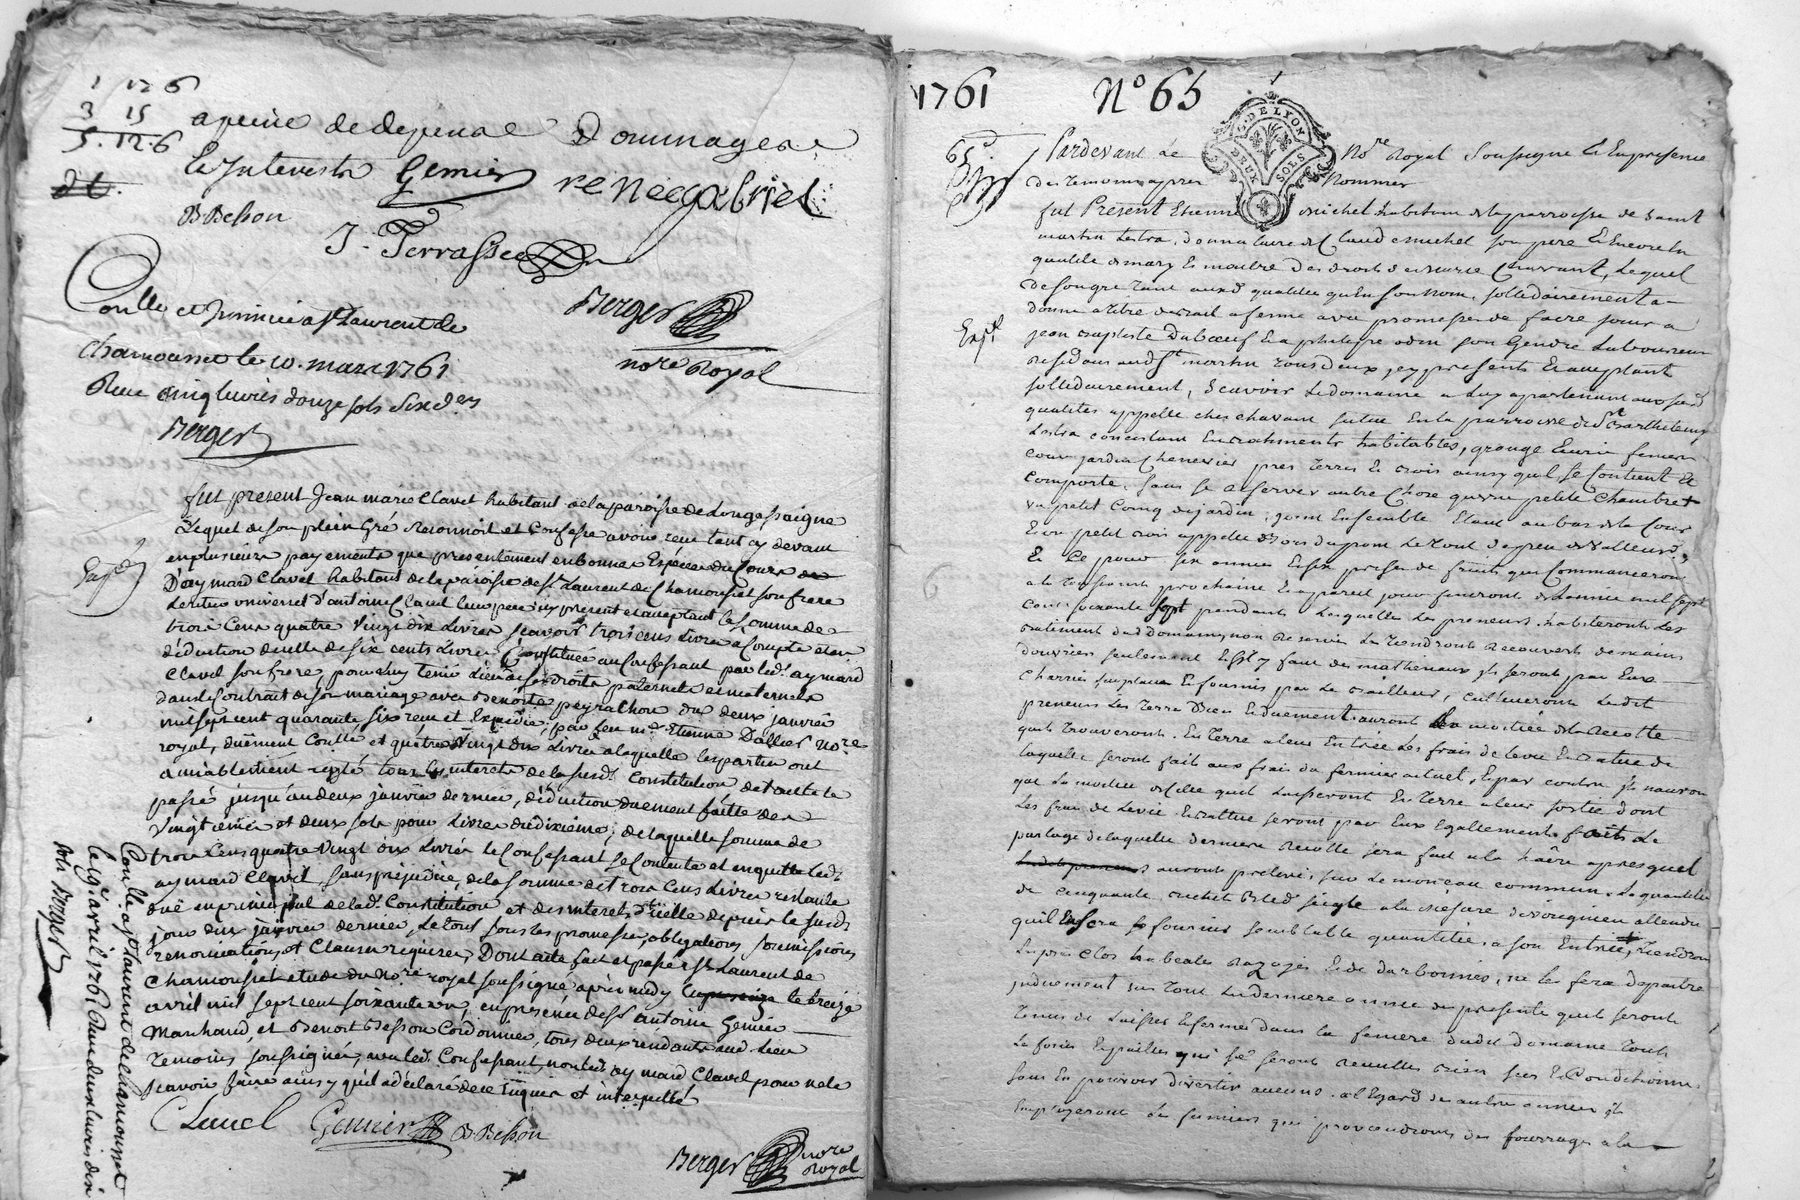 1 12 6
3 15
5. 12. 6
a peine de depense Dommages
Et Interests Gemier renée gabriel
B Besson J. Terrasse
Berger
no.re Royal
Conllé et Jnsinué a St Laurent de
chamousset le 10. mars 1761
Reçu cinq livres douze sols six d.ers
Berger
fut present Jean marie Clavel habitant de la paroisse de Longessaigne
Lequel de son plein Gré Reconnoit et Confesse avoir recu tant cy devant
en plusieurs payements que presentement en bonnes Espéces du Cours
D'aymard Clavel habitant de la paroise de St Laurent de Chamousset son frere
heritier universel d'antoine Clavel leur pere icy present et acceptant la somme de
trois Cens quatre Vingt dix Livres scavoir trois cens Livres a Compte et en
déduction de celle de six cents Livres Constituée au Confessant par led. aymard
Clavel son frere pour luy tenir Lieu de ses droits paternels et maternels
dans le Contrait de son mariage avec Benoite peyrachon du deux janvier
mil sept cent quarante six recu et Expedié par feu me Etienne Dallier No.re
royal, duement Conllé et quatre Vingt dix Livres a laquelle les parties ont
amiablement reglé tous les interets de la susd. Constitution de tout le
passé jusqu'au deux janvier dernier, déduction duement faitte des
Vingtiemes et deux sols pour Livre du dixieme; de laquelle somme de
trois Cens quatre Vingt dix Livres le Confessant se Contente et en quitte led.
aymard Clavel, sans prejudice de la somme de trois Cens Livres restante
duë en principal de lad. Constitution et des interets d'icelle depuis le susd.
jour deux janvier dernier, Le tout sous les promesses, obligations soumissions
renonciations et Clauses requises, Dont acte fait et passé a St Laurent de
Chamousset etude du No.re royal soussigné aprés midy le treize
avril mil sept cent soixante un, en presence de Sr antoine Gemier
Marchand, et Benoit Besson Cordonnier, tous deux residants aud. Lieu
Temoins soussignés, avec led. Confessant, non led. aymard Clavel pour ne le
scavoir faire ainsy qu'il a déclaré de ce Enquis et interpellé
Clavel Gemier B Besson
Berger no.re Royal
Conllé a St laurent de chamousset
le 19 avril 1761 Reçu deux livres dix
sols Berger
1761 N° 65
G. DE LYON
DEUX SOLS
65
Pardevant Le No.re Royal Soussigné Et En presence
des temoins apres Nommes
fut Present Etienne Michel habitant de la parroisse de saint
martin Lestra, donnataire de Claude michel son pere Et Encore En
qualité de mary Et maitre Des droits de Marie Chavant, Lequel
de son gre tant auxd. qualites qu'En son nom, sollidairement a
donné a titre de Bail a ferme avec promesse de faire jouir a
Exp.é
jean baptiste Duboeuf Et a philippe odin son Gendre Laboureurs
residans aud St martin tous deux, icy presents Et acceptant
sollidairement, Scavoir Le domaine a Luy apartenant aux susd.
qualites appelle chez chavant situe En la parroisse de St Barthelemy
Lestra consistant En batiments habitables, grange Ecurie fenieres
cour jardin Chenevier pres terres Et bois ainsy qu'il se Contient Et
Comporte. Sans se reserver autre Chose qu'une petite Chambre Et
un petit Coing de jardin, joint Ensemble Etant au bas de la Cour
Et ce pour six années Et six prises de fruits qui Commanceront
a la toussaint prochaine Et a pareil jour finiront de Lannée mil sept
cens soixante sept pendant Lesquelles Les preneurs habiteront Les
batiment dud domaine non Reservés Le tiendront Recouvert de mains
douvriers seulement Et s'il y faut des matheriaux ils seront par Eux
charriés sur place Et fournis par Le Bailleur, cultiveront Ledit
preneurs Les terres Bien Et duement auront La moitié de la Recolte
quils trouveront En terre a leur Entrée Les frais de levée Et batue de
laquelle seront fait aux frais du fermier actuel, Et par contre ils n'auront
que La moitié de Celle quils Laisseront En terre a leur sortie dont
Les frais de Levée Et battue seront par Eux Egallement faits Le
partage de laquelle derniere Recolte sera fait a la haire apres quel
auront prelevé sur Le monceau commun La quantité
de cinquante bichets Bled seigle a la mesure de virigneu attendu
quil En sera fournir semblable quantité a son Entrée, tiendront
Les pres clos ... ne les fera depaitre
induement sur tout La derniere année du presente quils seront
tenus de Laisser Enfermer dans la feniere dudit domaine tout
Le foin Et pailles qui se seront Recuillis bien secs Et Conditionnés
sans En pouvoir divertir aucuns, a l'Egard des autres années ils
Employeront Les fumiers qui proviendront des fourrages a la